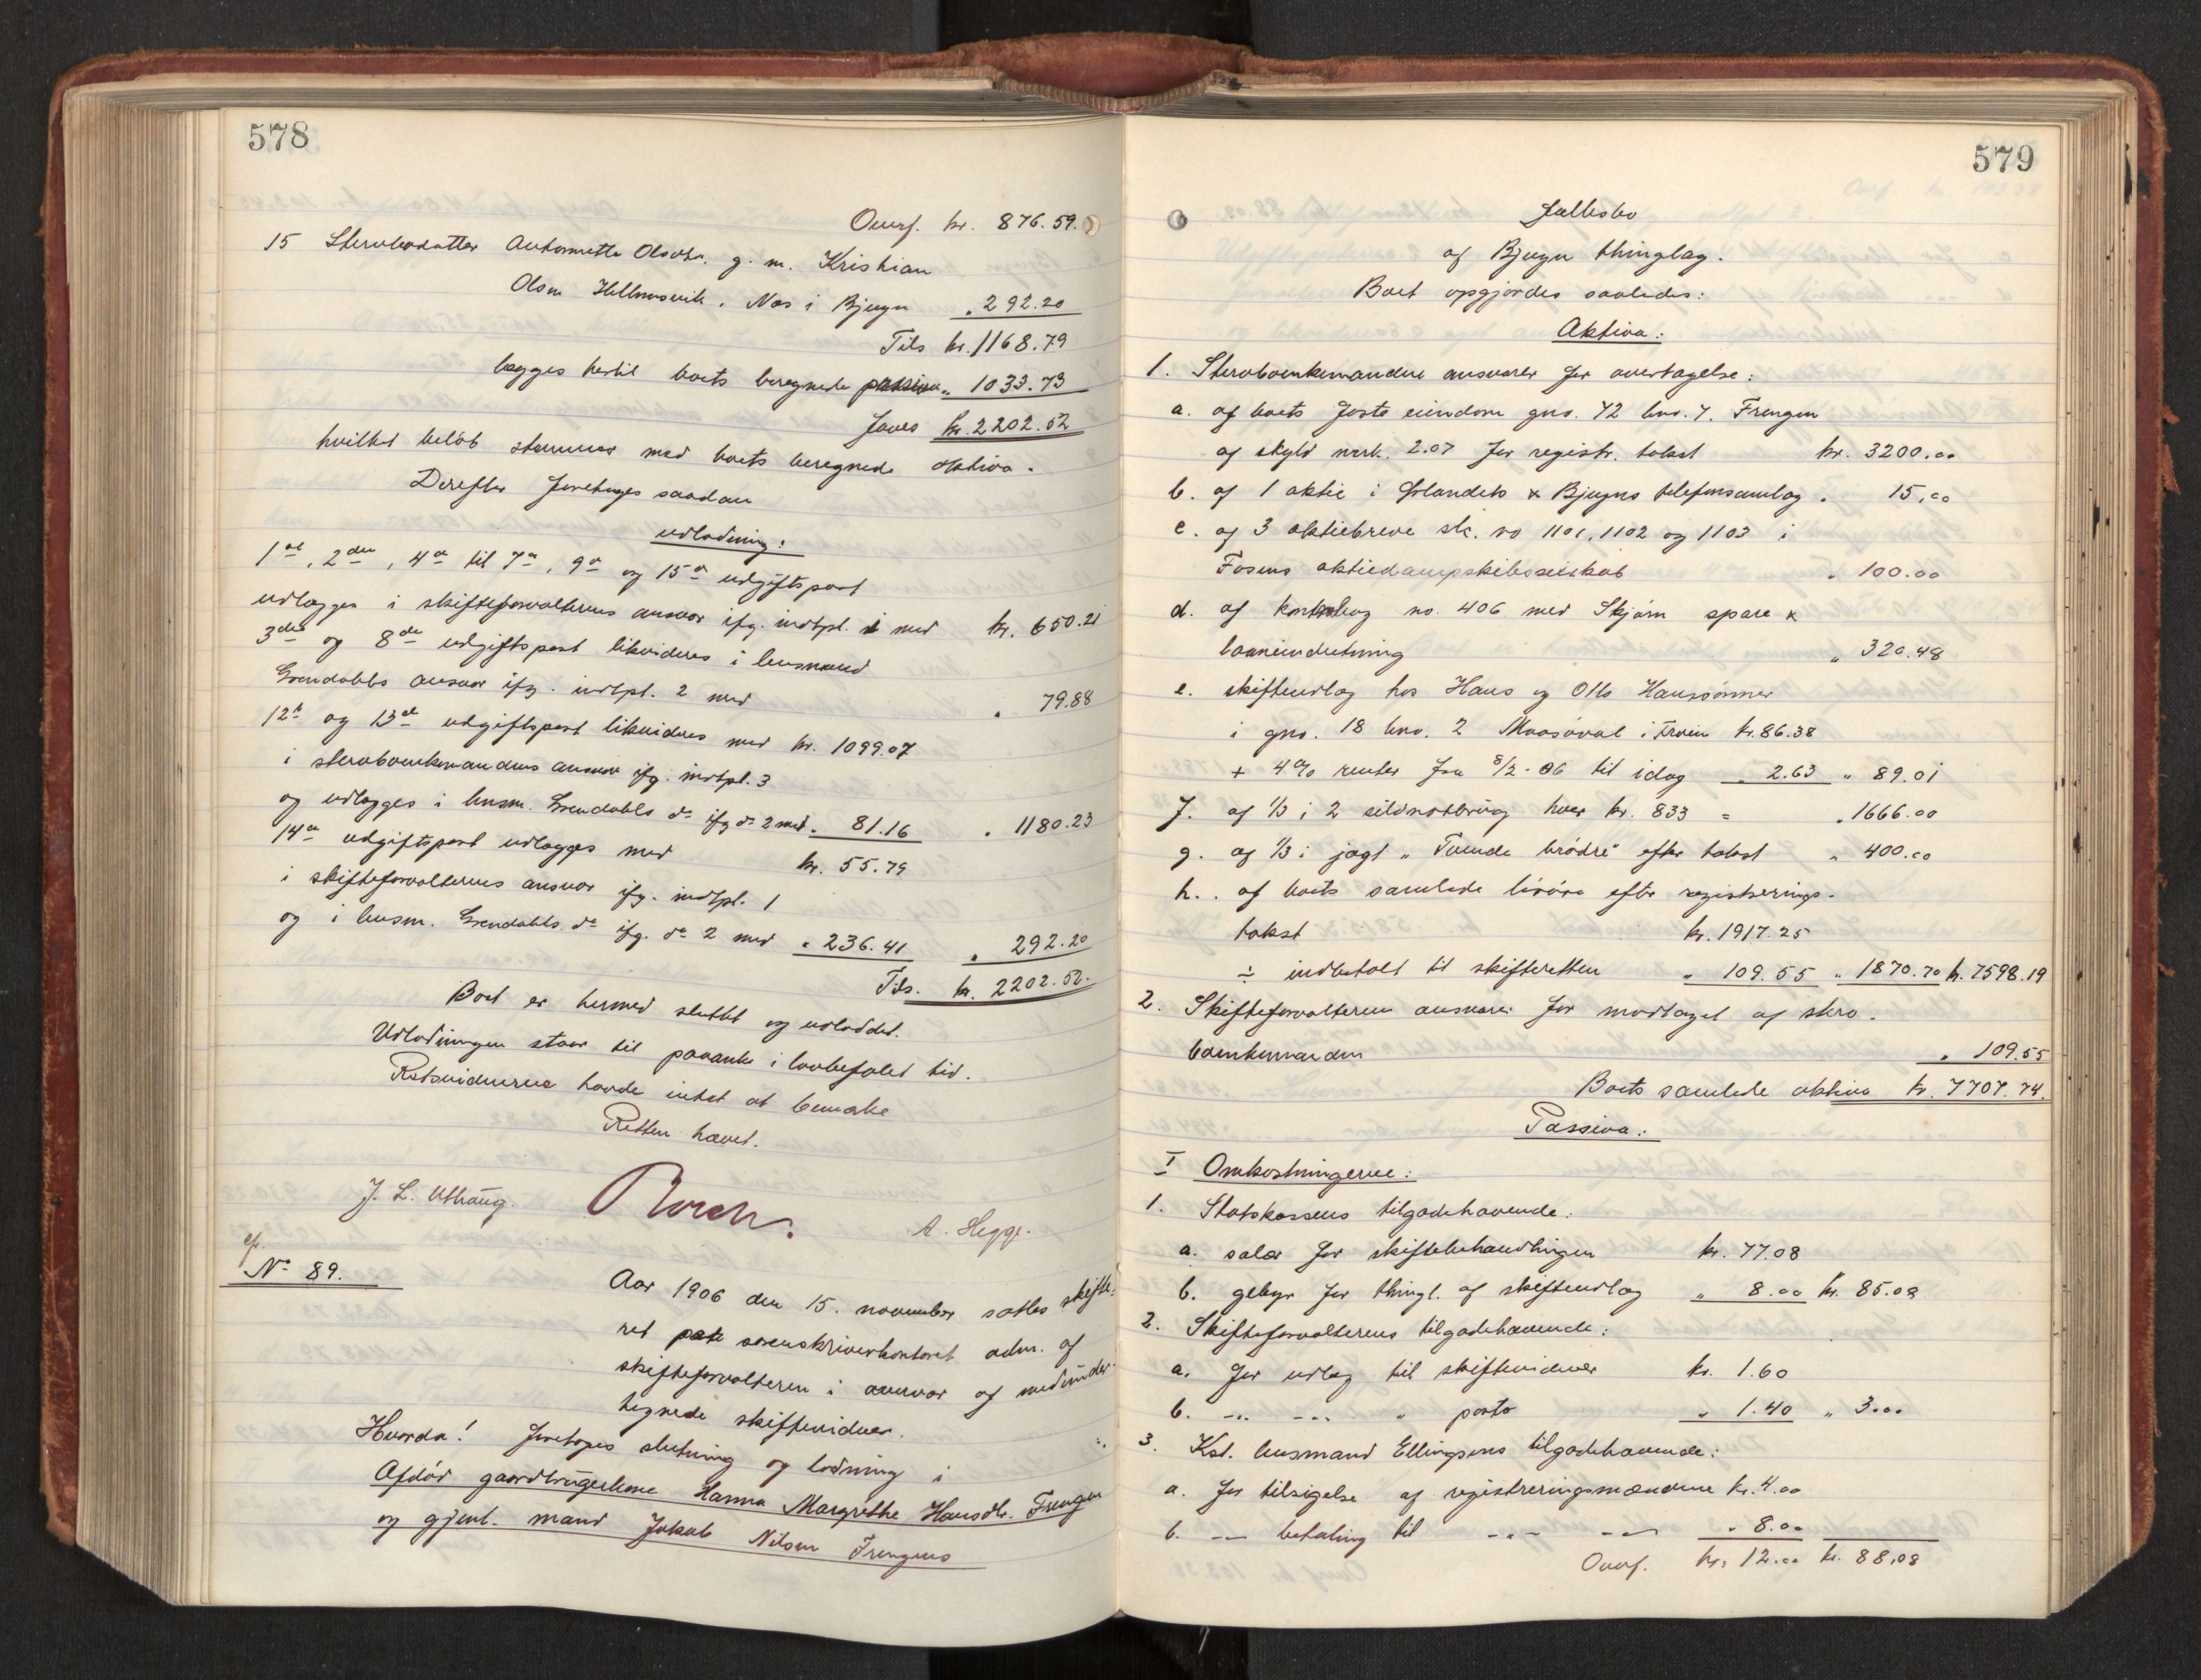 578
Overf. kr. 876.59.
15 Stervbodatter Antonnette Olsdtr. g. m. Kristian
Olsen Hellemsvik, Næs i Bjugn „ 292.20
Tils kr. 1168.79
lægges hertil boets beregnede passiva „ 1033.73
faaes kr. 2202.52
hvilket beløb stemmer med boets beregnede aktiva.
Derefter foretages saadan
udlodning:
1ste, 2den, 4de til 7de, 9de og 15de udgiftspost
udlægges i skifteforvalterens ansvar ifg. indtpt. 1 med kr. 650.21
3die og 8de udgiftspost likvideres i lensmand
Grendahls ansvar ifg. indtpt. 2 med „ 79.88
12te og 13de udgiftspost likvideres med kr. 1099.07
i stervboenkemandens ansvar ifg. indtpt. 3
og udlægges i lensm. Grendahls do ifg do 2 med „ 81.16 „ 1180.23
14de udgiftspost udlægges med kr. 55.79
i skifteforvalterens ansvar ifg. indtpt. 1
og i lensm. Grendahls do ifg. do 2 med „ 236.41 „ 292.20
Tils. kr. 2202.52.
Boet er hermed sluttet og udloddet.
Udlodningen staar til paaanke i lovbefalet tid.
Retsvidnerne havde intet at bemærke
Retten hævet.
J. L. Uthaug. A. Hegge.
No 89.
Aar 1906 den 15. november sattes skifte-
ret paa sorenskriverkontoret adm. af
skifteforvalteren i overvær af medunder-
tegnede skiftevidner.
Hvorda! Foretoges slutning og lodning i
Afdød gaardbrugerkone Hanna Margrethe Hansdtr. Frengen
og gjenl. mand Jakob Nilsen Frengens
579
fællesbo
af Bjugn thinglag.
Boet opgjordes saaledes:
Aktiva:
1. Stervboenkemanden ansvarer for overtagelse:
a. af boets faste eiendom gno. 72 bno. 7. Frengen
af skyld mrk. 2.07 for registr. takst kr. 3200.00
b. af 1 aktie i Ørlandets & Bjugns telefonsamlag „ 15.00
c. af 3 aktiebreve stk. no 1101, 1102 og 1103 i
Fosens aktiedampskibsselskab „ 100.00
d. af kontrabog no. 406 med Skjørn spare &
laaneindretning „ 320.48
e. skifteudlæg hos Hans og Otto Hanssønner
i gno. 18 bno. 2 Maasøval i Frøien kr. 86.38
+ 4% renter fra 8/2-06 til idag „ 2.63 „ 89.01
f. af 1/3 i 2 sildnotbrug hver kr. 833 = „ 1666.00
g. af 1/3 i jagt „Tvende brødre" efter takst „ 400.00
h. af boets samlede løsøre efter registrerings-
takst kr. 1917.25
÷ indbetalt til skifteretten „ 109.55 „ 1870.70 kr. 7598.19
2. Skifteforvalteren ansvarer for modtaget af sterv-
boenkemanden „ 109.55
Boets samlede aktiva kr. 7707.74.
Passiva:
I Omkostningerne:
1. Statskassens tilgodehavende:
a. salær for skiftebehandlingen kr. 77.08
b. gebyr for thingl. af skifteudlæg „ 8.00 kr. 85.08
2. Skifteforvalterens tilgodehavende:
a. for udlæg til skiftevidner kr. 1.60
b. -"- -"- „ porto „ 1.40 „ 3.00
3. Kst. lensmand Ellingsens tilgodehavende:
a. for tilsigelse af registreringsmændene kr. 4.00
b. -"- betaling til -"- -"- „ 8.00
Overf. kr. 12.00 kr. 88.08